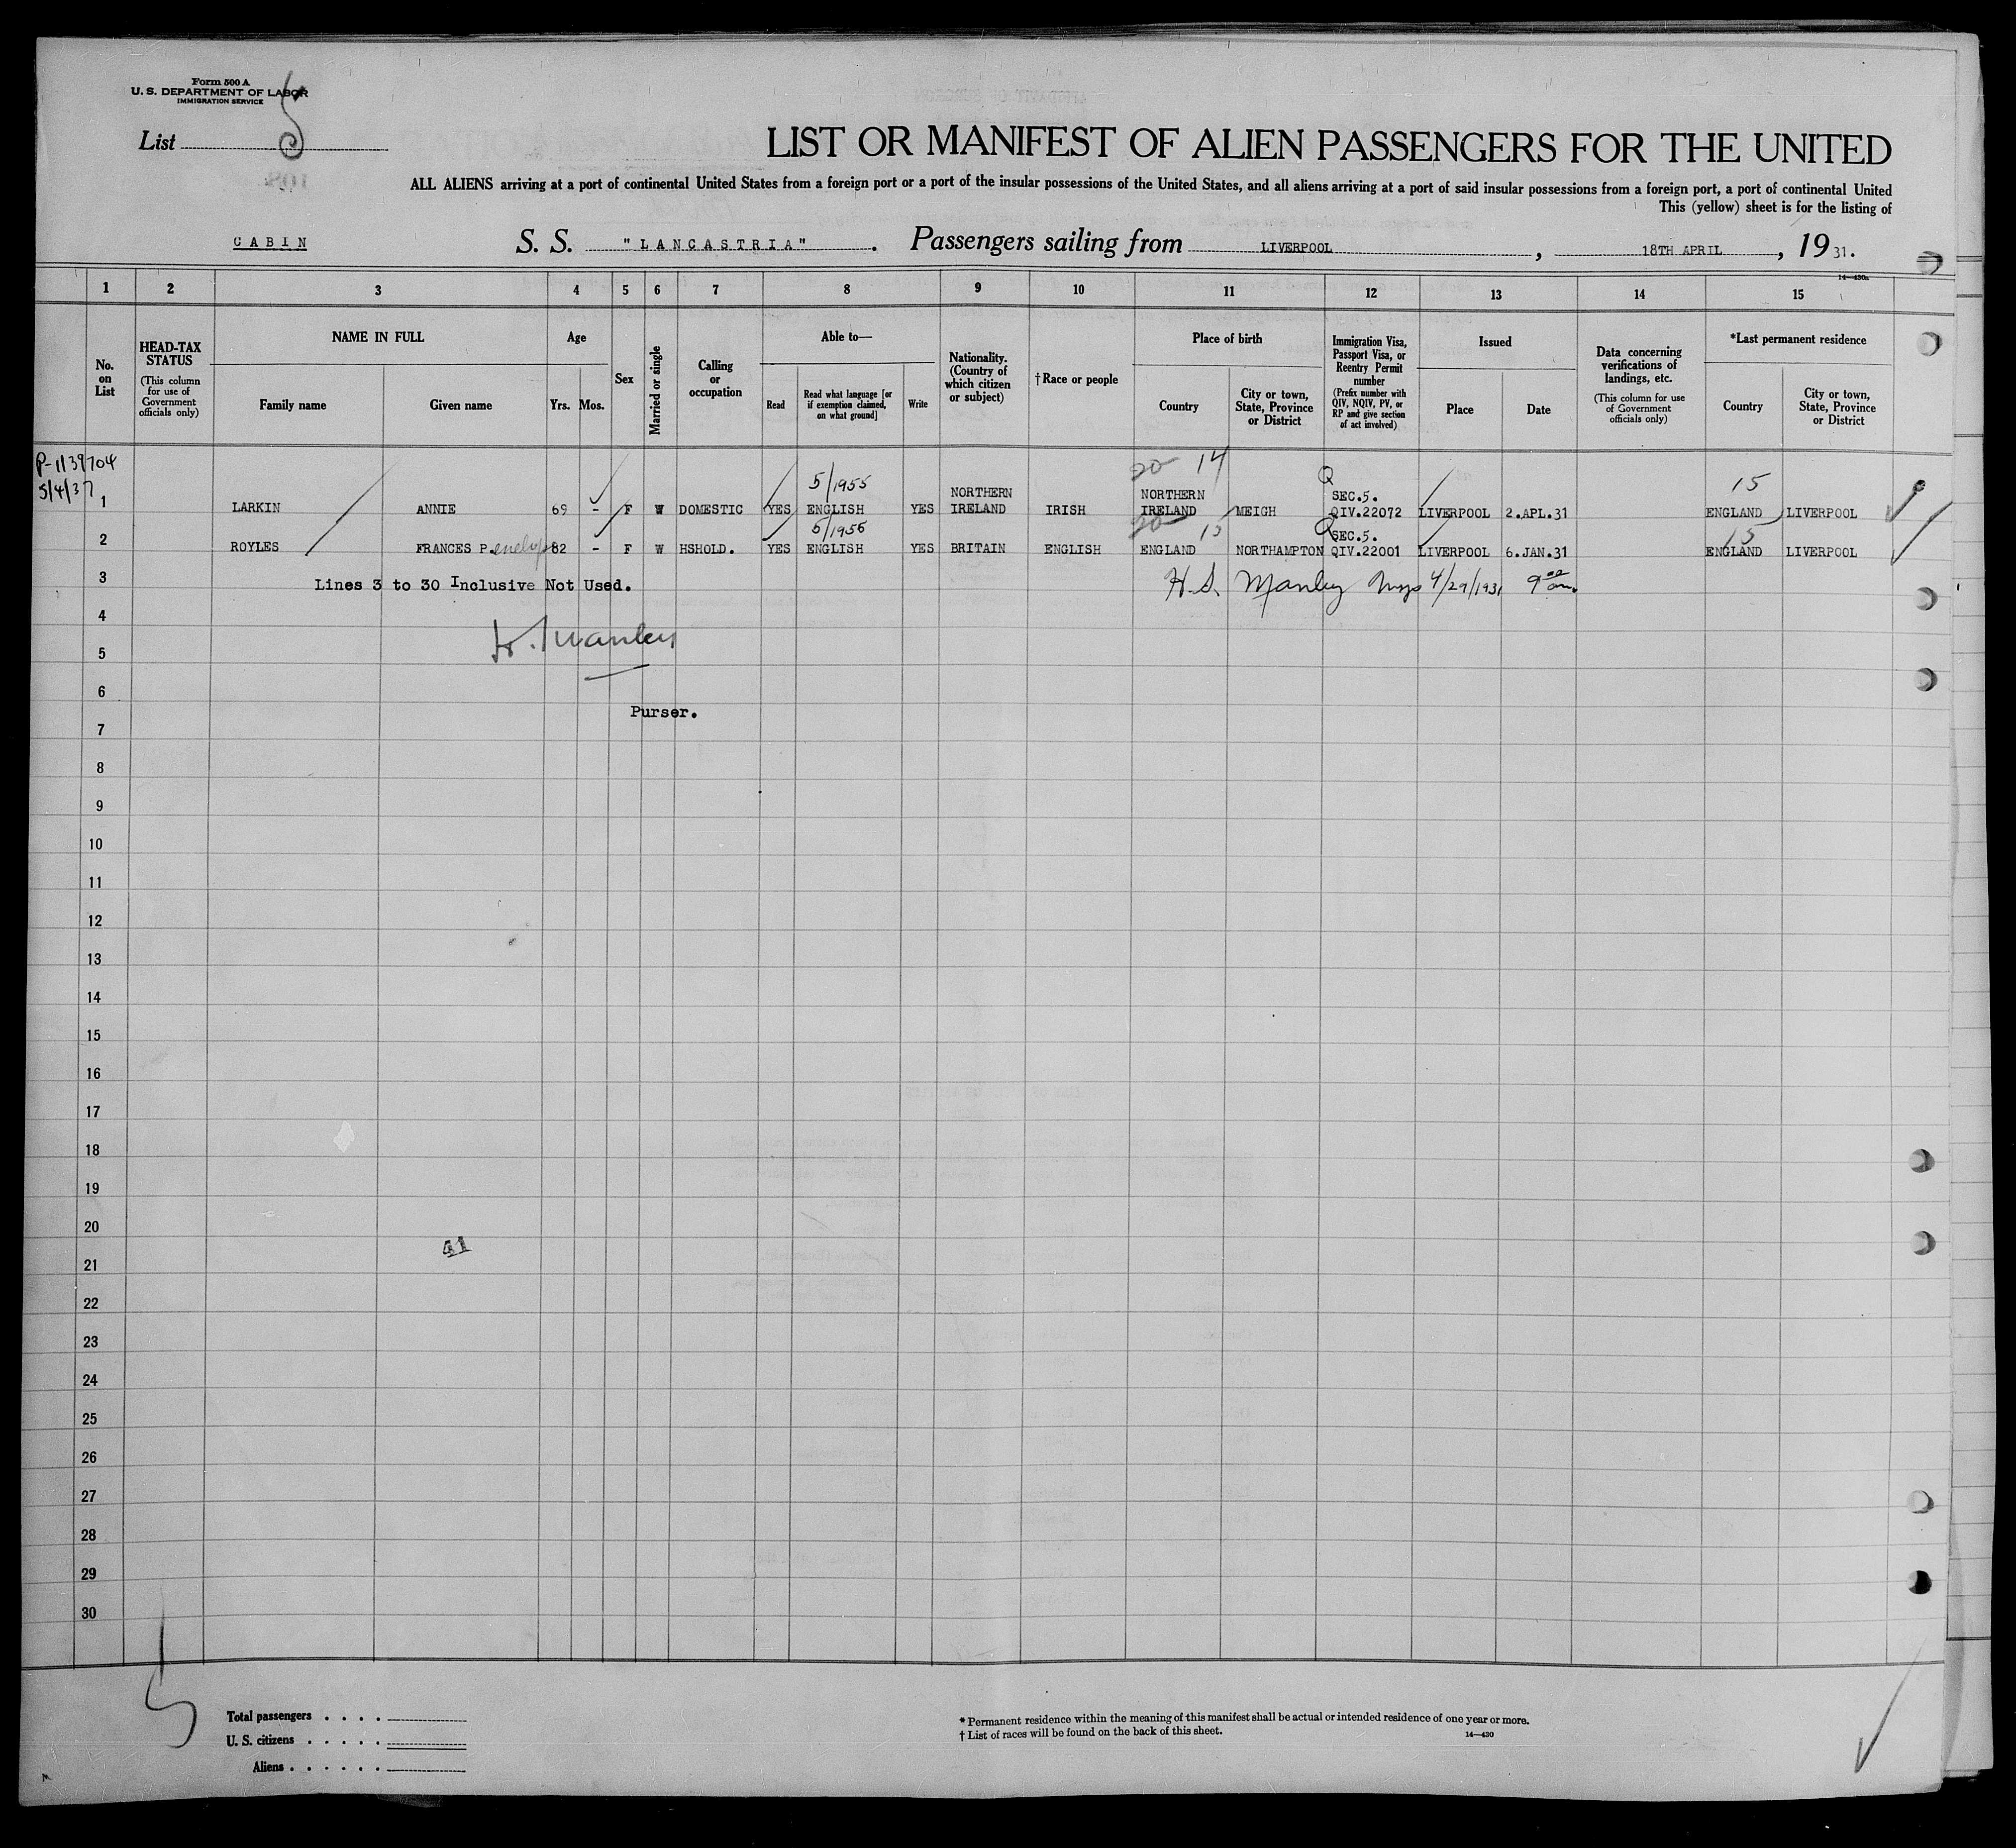 Form 500 A
U. S. DEPARTMENT OF LABOR
IMMIGRATION SERVICE
List 5
LIST OR MANIFEST OF ALIEN PASSENGERS FOR THE UNITED
ALL ALIENS arriving at a port of continental United States from a foreign port or a port of the insular possessions of the United States, and all aliens arriving at a port of said insular possessions from a foreign port, a port of continental United
This (yellow) sheet is for the listing of
CABIN S. S. "LANCASTRIA". Passengers sailing from LIVERPOOL, 18TH APRIL, 1931.
14—430a
1 2 3 4 5 6 7 8 9 10 11 12 13 14 15
No. on List
HEAD-TAX STATUS (This column for use of Government officials only)
NAME IN FULL Family name Given name
Age Yrs. Mos.
Sex
Married or single
Calling or occupation
Able to— Read Read what language [or if exemption claimed, on what ground] Write
Nationality. (Country of which citizen or subject)
†Race or people
Place of birth Country City or town, State, Province or District
Immigration Visa, Passport Visa, or Reentry Permit number (Prefix number with QIV, NQIV, PV, or RP and give section of act involved)
Issued Place Date
Data concerning verifications of landings, etc. (This column for use of Government officials only)
*Last permanent residence Country City or town, State, Province or District
P-1139704
5/4/37
5/1955 20 14 Q 15
1 LARKIN ANNIE 69 - F W DOMESTIC YES ENGLISH YES NORTHERN IRELAND IRISH NORTHERN IRELAND MEIGH SEC.5. QIV.22072 LIVERPOOL 2.APL.31 ENGLAND LIVERPOOL
5/1956 20 13 Q 15
2 ROYLES FRANCES P.enelope 82 - F W HSHOLD. YES ENGLISH YES BRITAIN ENGLISH ENGLAND NORTHAMPTON SEC.5. QIV.22001 LIVERPOOL 6.JAN.31 ENGLAND LIVERPOOL
3 Lines 3 to 30 Inclusive Not Used. H.S. Manley 4/29/1931 9 00 am.
4
5
6
Purser.
7
8
9
10
11
12
13
14
15
16
17
18
19
20
41
21
22
23
24
25
26
27
28
29
30
Total passengers . . . .
U. S. citizens . . . . .
Aliens . . . . . .
* Permanent residence within the meaning of this manifest shall be actual or intended residence of one year or more.
† List of races will be found on the back of this sheet.
14—430